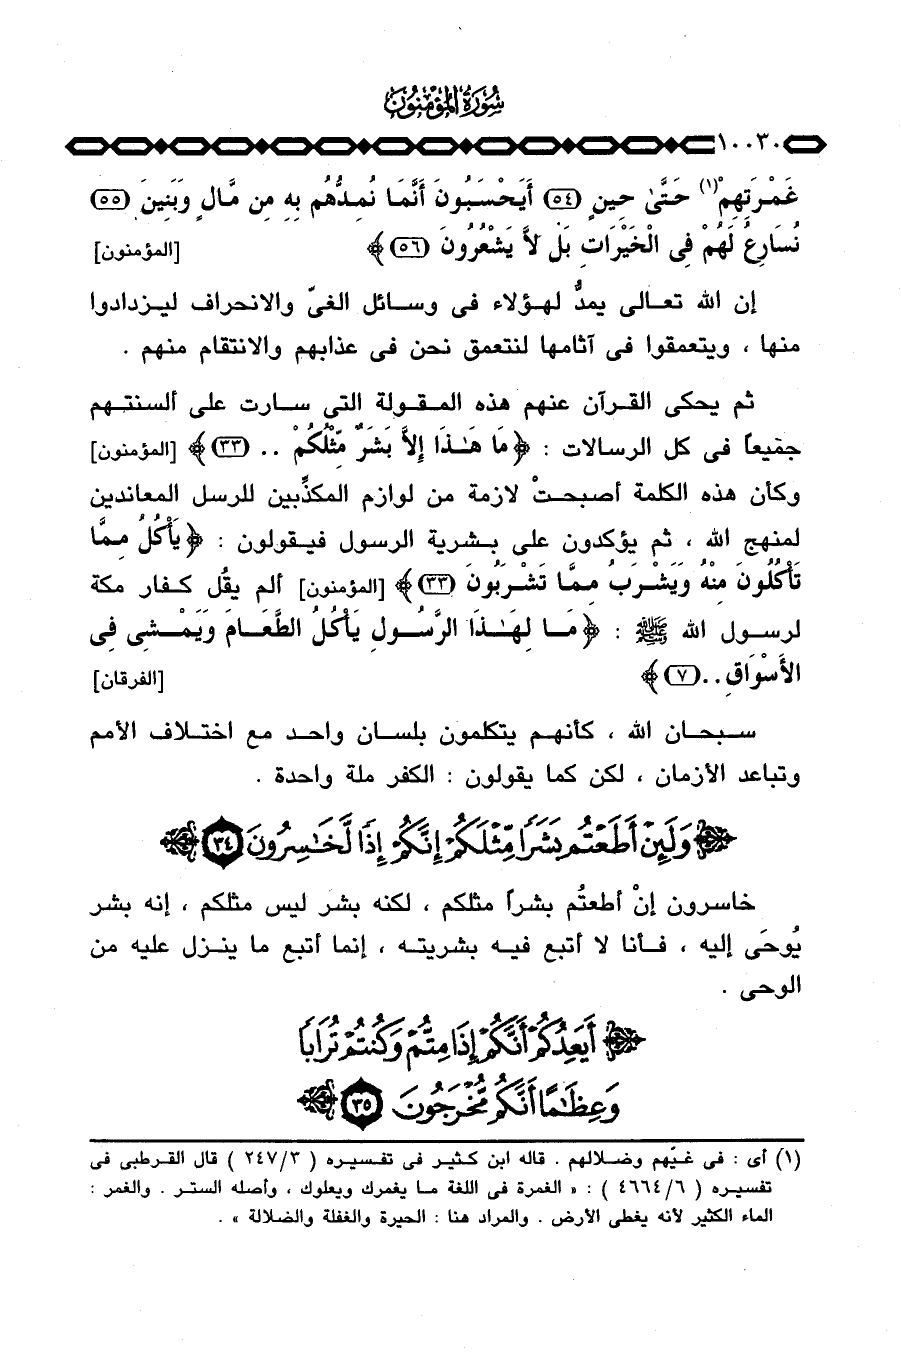 سُورَةُ المُؤْمِنُونَ
١٠٠٣٠
غَمْرَتِهِمْ(١) حَتَّىٰ حِينٍ (٥٤) أَيَحْسَبُونَ أَنَّمَا نُمِدُّهُم بِهِ مِن مَّالٍ وَبَنِينَ (٥٥)
نُسَارِعُ لَهُمْ فِى الْخَيْرَاتِ بَل لاَّ يَشْعُرُونَ (٥٦) ﴾ [المؤمنون]
إن الله تعالى يمدُّ لهؤلاء فى وسائل الغىّ والانحراف ليزدادوا
منها ، ويتعمقوا فى آثامها لنتعمق نحن فى عذابهم والانتقام منهم .
ثم يحكى القرآن عنهم هذه المقولة التى سارت على ألسنتهم
جميعاً فى كل الرسالات : ﴿ مَا هَـٰذَا إِلاَّ بَشَرٌ مِّثْلُكُمْ .. (٣٣) ﴾ [المؤمنون]
وكأن هذه الكلمة أصبحتْ لازمة من لوازم المكذِّبين للرسل المعاندين
لمنهج الله ، ثم يؤكدون على بشرية الرسول فيقولون : ﴿ يَأْكُلُ مِمَّا
تَأْكُلُونَ مِنْهُ وَيَشْرَبُ مِمَّا تَشْرَبُونَ (٣٣) ﴾ [المؤمنون] ألم يقُل كفار مكة
لرسول الله ﷺ : ﴿ مَا لِهَـٰذَا الرَّسُولِ يَأْكُلُ الطَّعَامَ وَيَمْشِى فِى
الأَسْوَاقِ .. (٧) ﴾ [الفرقان]
سبحان الله ، كأنهم يتكلمون بلسان واحد مع اختلاف الأمم
وتباعد الأزمان ، لكن كما يقولون : الكفر ملة واحدة .
﴿ وَلَئِنْ أَطَعْتُم بَشَرًا مِّثْلَكُمْ إِنَّكُمْ إِذًا لَّخَـٰسِرُونَ ٣٤ ﴾
خاسرون إنْ أطعتُم بشراً مثلكم ، لكنه بشر ليس مثلكم ، إنه بشر
يُوحَى إليه ، فأنا لا أتبع فيه بشريته ، إنما أتبع ما ينزل عليه من
الوحى .
﴿ أَيَعِدُكُمْ أَنَّكُمْ إِذَا مِتُّمْ وَكُنتُمْ تُرَابًا
وَعِظَـٰمًا أَنَّكُم مُّخْرَجُونَ ٣٥ ﴾
(١) أى : فى غيّهم وضلالهم . قاله ابن كثير فى تفسيره ( ٢٤٧/٣ ) قال القرطبى فى
تفسيره ( ٤٦٦٤/٦ ) : « الغمرة فى اللغة ما يغمرك ويعلوك ، وأصله الستر . والغمر :
الماء الكثير لأنه يغطى الأرض . والمراد هنا : الحيرة والغفلة والضلالة » .